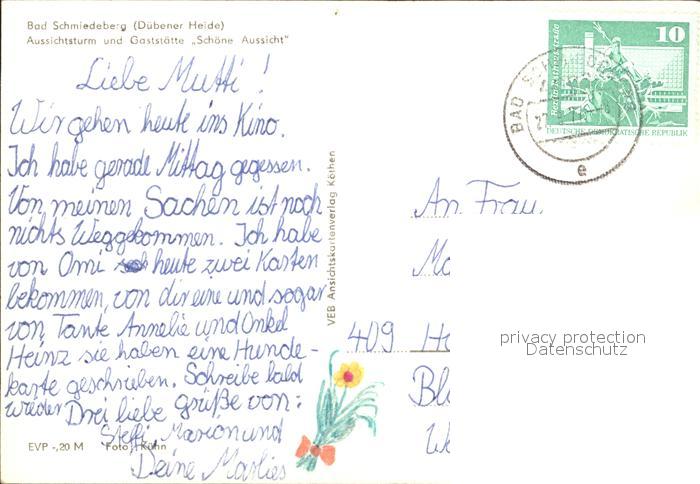 Bad Schmiedeberg (Dübener Heide)
Aussichtsturm und Gaststätte „Schöne Aussicht"
Liebe Mutti!
Wir gehen heute ins Kino.
Ich habe gerade Mittag gegessen.
Von meinen Sachen ist noch
nichts Weggekommen. Ich habe
von Omi heute zwei Karten
bekommen, von dir eine und sogar
von Tante Annelie und Onkel
Heinz sie haben eine Hunde-
karte geschrieben. Schreibe bald
wieder Drei liebe grüße von:
Steffi, Marion und
Deine Marlies
EVP -,20 M Foto: Kühn
VEB Ansichtskartenverlag Köthen
10
Berlin, Rathausstraße
DEUTSCHE DEMOKRATISCHE REPUBLIK
BAD
e
An Frau
409
privacy protection
Datenschutz